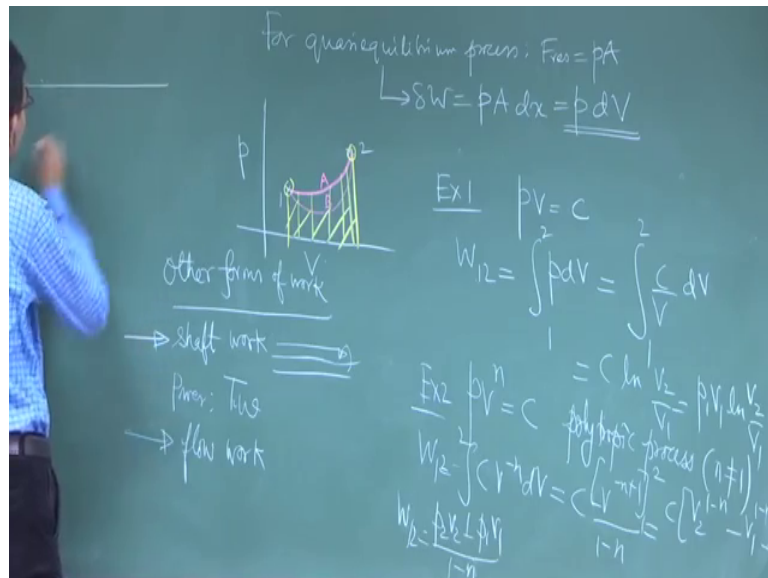 For quasiequilibrium process: Fres = pA
↳ δW = pA dx = p dV
p
1
A
B
2
V
Other forms of work
→ shaft work
Power: Tω
→ flow work
Ex1 pV = C
W₁₂ = ∫₁² pdV = ∫₁² C/V dV
= C ln V₂/V₁ = p₁V₁ ln V₂/V₁
Ex2 pVⁿ = C polytropic process (n≠1)
W₁₂ = ∫₁² C V⁻ⁿ dV = C [V⁻ⁿ⁺¹]₁²/1-n = C[V₂¹⁻ⁿ - V₁
W₁₂ = p₂V₂ - p₁V₁/1-n